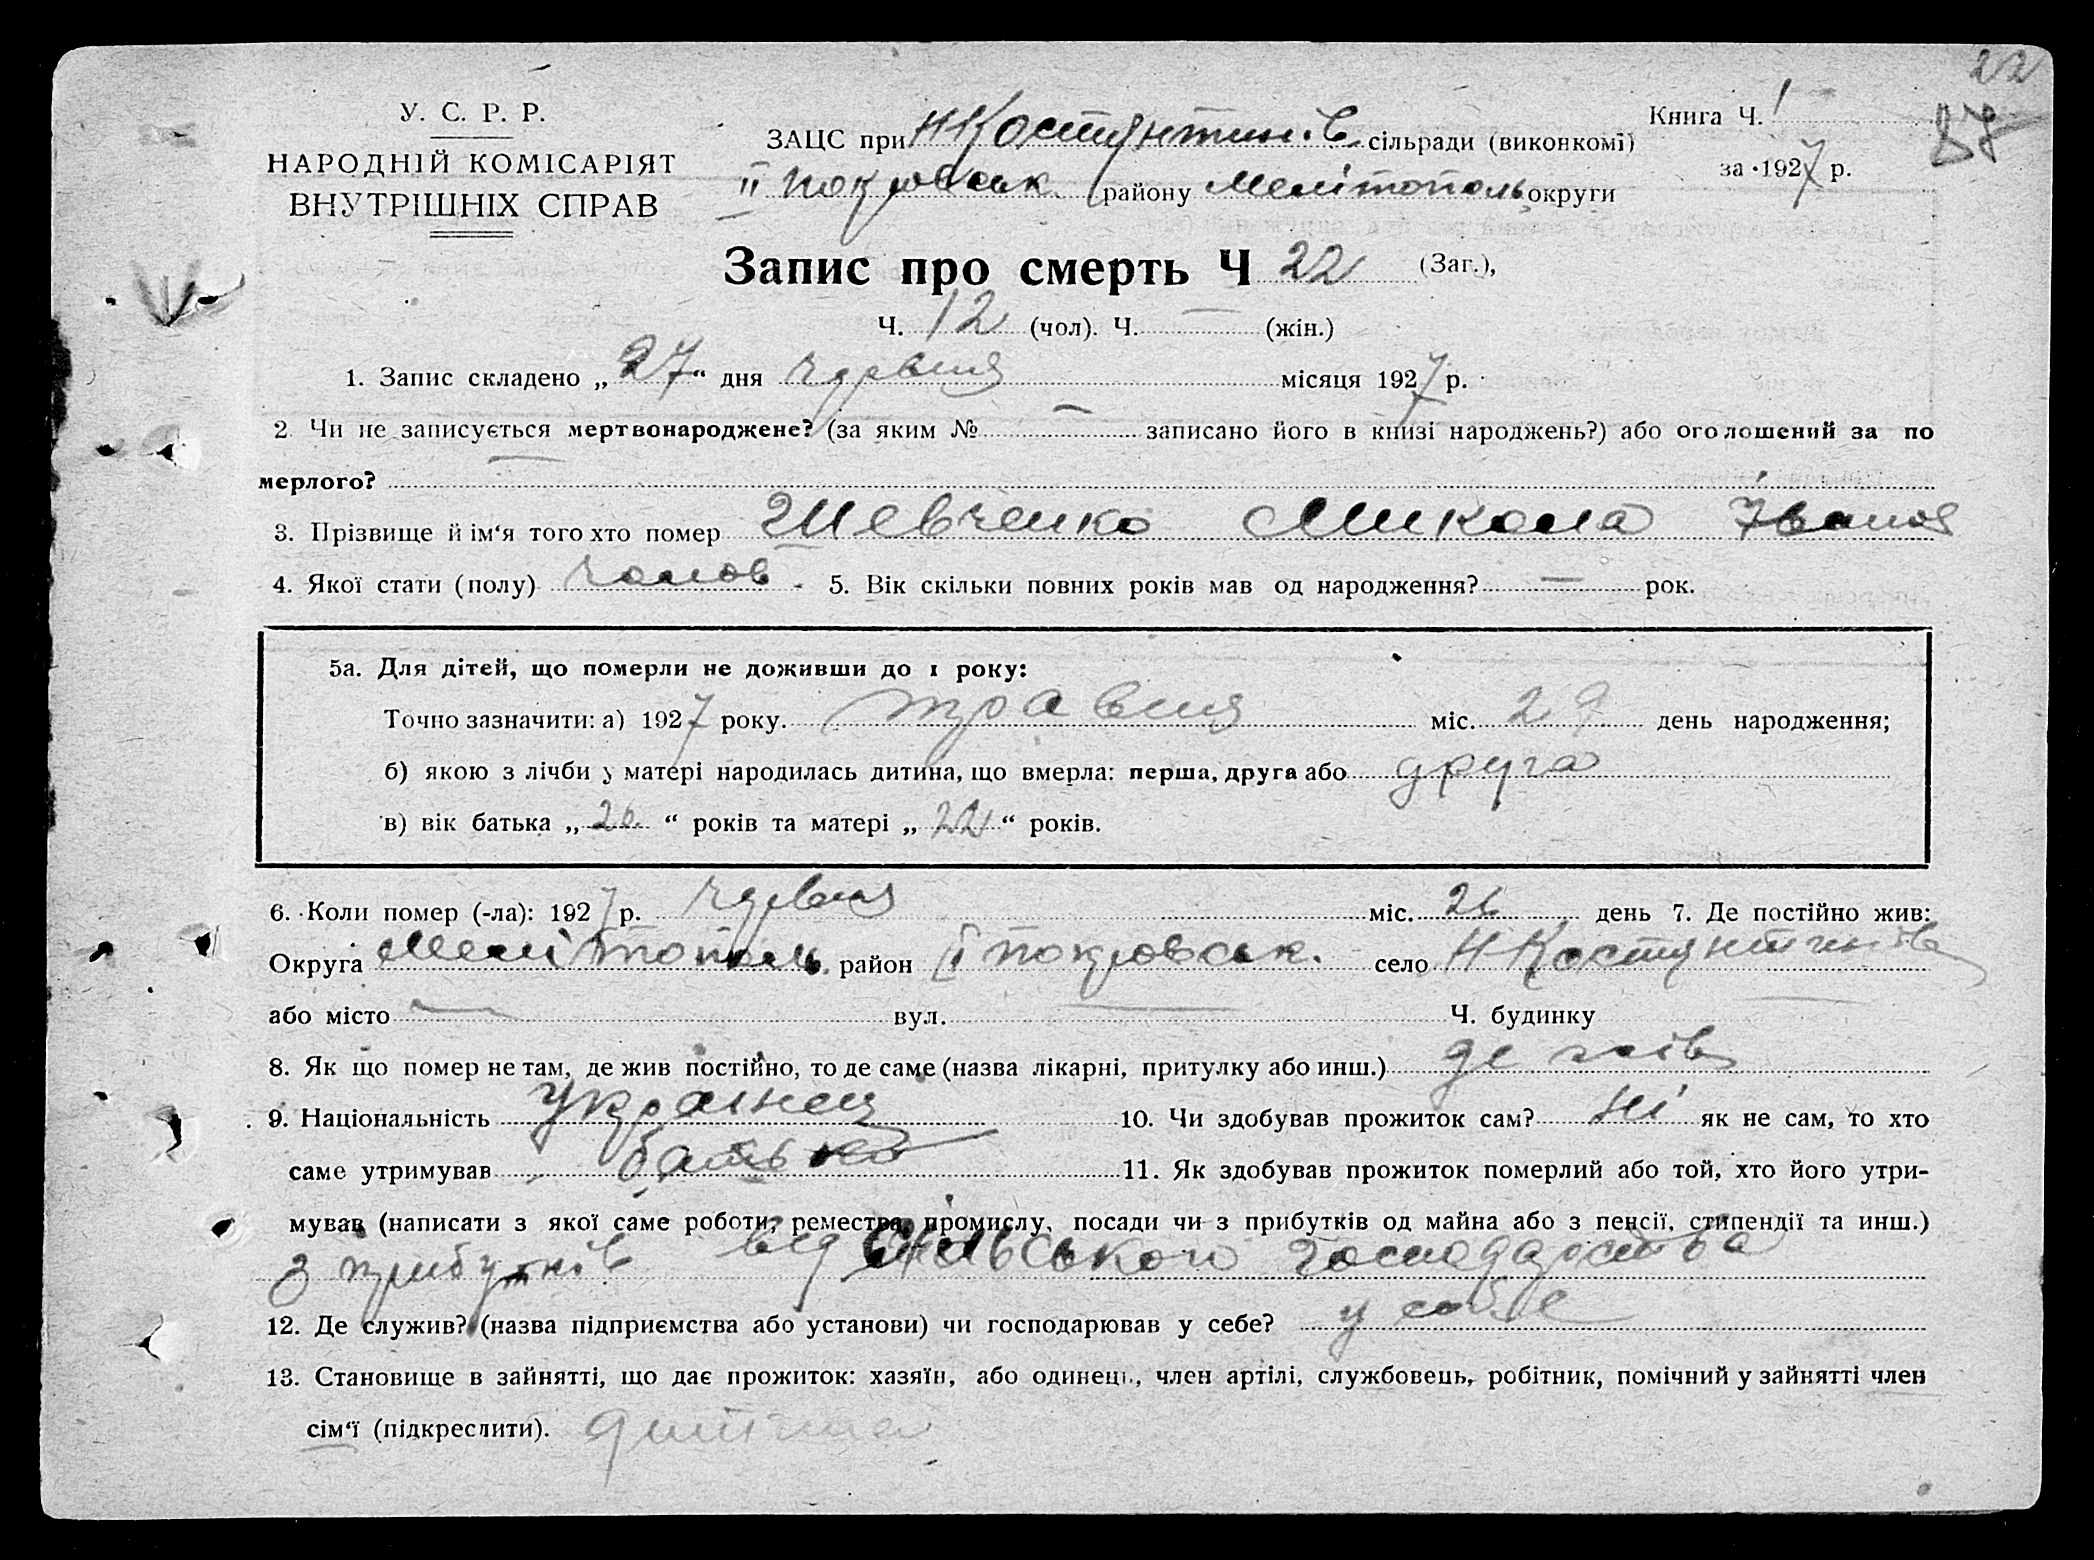 22
87
У. С. Р. Р.
НАРОДНІЙ КОМІСАРІЯТ
ВНУТРІШНІХ СПРАВ
ЗАЦС при Н Костянтинів. сільради (виконкомі)
II Покровськ. району Мелітополь округи
Книга Ч. 1
за 1927 р.
Запис про смерть Ч 22 (Заг.),
Ч. 12 (чол). Ч. — (жін.)
1. Запис складено „27“ дня червня місяця 1927 р.
2. Чи не записується мертвонароджене? (за яким № — записано його в книзі народжень?) або оголошений за по
мерлого? —
3. Прізвище й ім‘я того хто помер Шевченко Микола Іванов
4. Якої стати (полу) чолов. 5. Вік скільки повних років мав од народження? — рок.
5а. Для дітей, що померли не доживши до 1 року:
Точно зазначити: а) 1927 року. травня міс. 29 день народження;
б) якою з лічби у матері народилась дитина, що вмерла: перша, друга або друга
в) вік батька „26“ років та матері „22“ років.
6. Коли помер (-ла): 1927 р. червня міс. 26 день 7. Де постійно жив:
Округа Мелітополь. район II Покровськ. село Н Костянтинів
або місто — вул. — Ч. будинку
8. Як що помер не там, де жив постійно, то де саме (назва лікарні, притулку або инш.) де жив
9. Національність українец 10. Чи здобував прожиток сам? ні як не сам, то хто
саме утримував батько 11. Як здобував прожиток померлий або той, хто його утри-
мував (написати з якої саме роботи, ремества, промислу, посади чи з прибутків од майна або з пенсії, стипендії та инш.)
з прибутків від сільського господарства
12. Де служив? (назва підприємства або установи) чи господарював у себе? у себе
13. Становище в зайнятті, що дає прожиток: хазяїн, або одинець, член артілі, службовець, робітник, помічний у зайнятті член
сім‘ї (підкреслити).